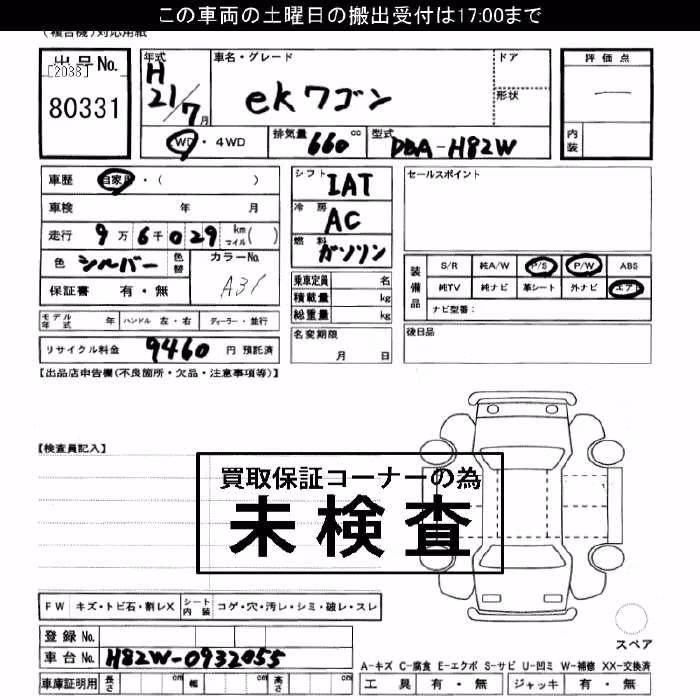 この車両の土曜日の搬出受付は17:00まで
(複合機)対応用紙
出品No.
[2038]
80331
年式
H
21/7月
車名・グレード
ekワゴン
ドア
形状
評価点
内装
2WD・4WD
排気量 660 cc
型式 DBA-H82W
車歴 自家用・( )
車検 年 月
走行 9万6千029 km マイル( )
色 シルバー 色替
カラーNo. A31
保証書 有・無
シフト IAT
冷房 AC
燃料 ガソリン
乗車定員 名
積載量 kg
総重量 kg
セールスポイント
装備品
S/R 純A/W P/S P/W ABS
純TV 純ナビ 革シート 外ナビ エアB
ナビ型番:
モデル年式 年 ハンドル 左・右 ディーラー・並行
名変期限
月 日
後日品
リサイクル料金 9460 円 預託済
【出品店申告欄(不良箇所・欠品・注意事項等)】
【検査員記入】
買取保証コーナーの為
未検査
FW キズ・トビ石・割レX シート内装 コゲ・穴・汚レ・シミ・破レ・スレ
スペア
登録No.
車台No. H82W-0932055
A-キズ C-腐食 E-エクボ S-サビ U-凹ミ W-補修 XX-交換済
車庫証明用 長さ cm 幅 cm 高さ cm
工具 有・無 ジャッキ 有・無